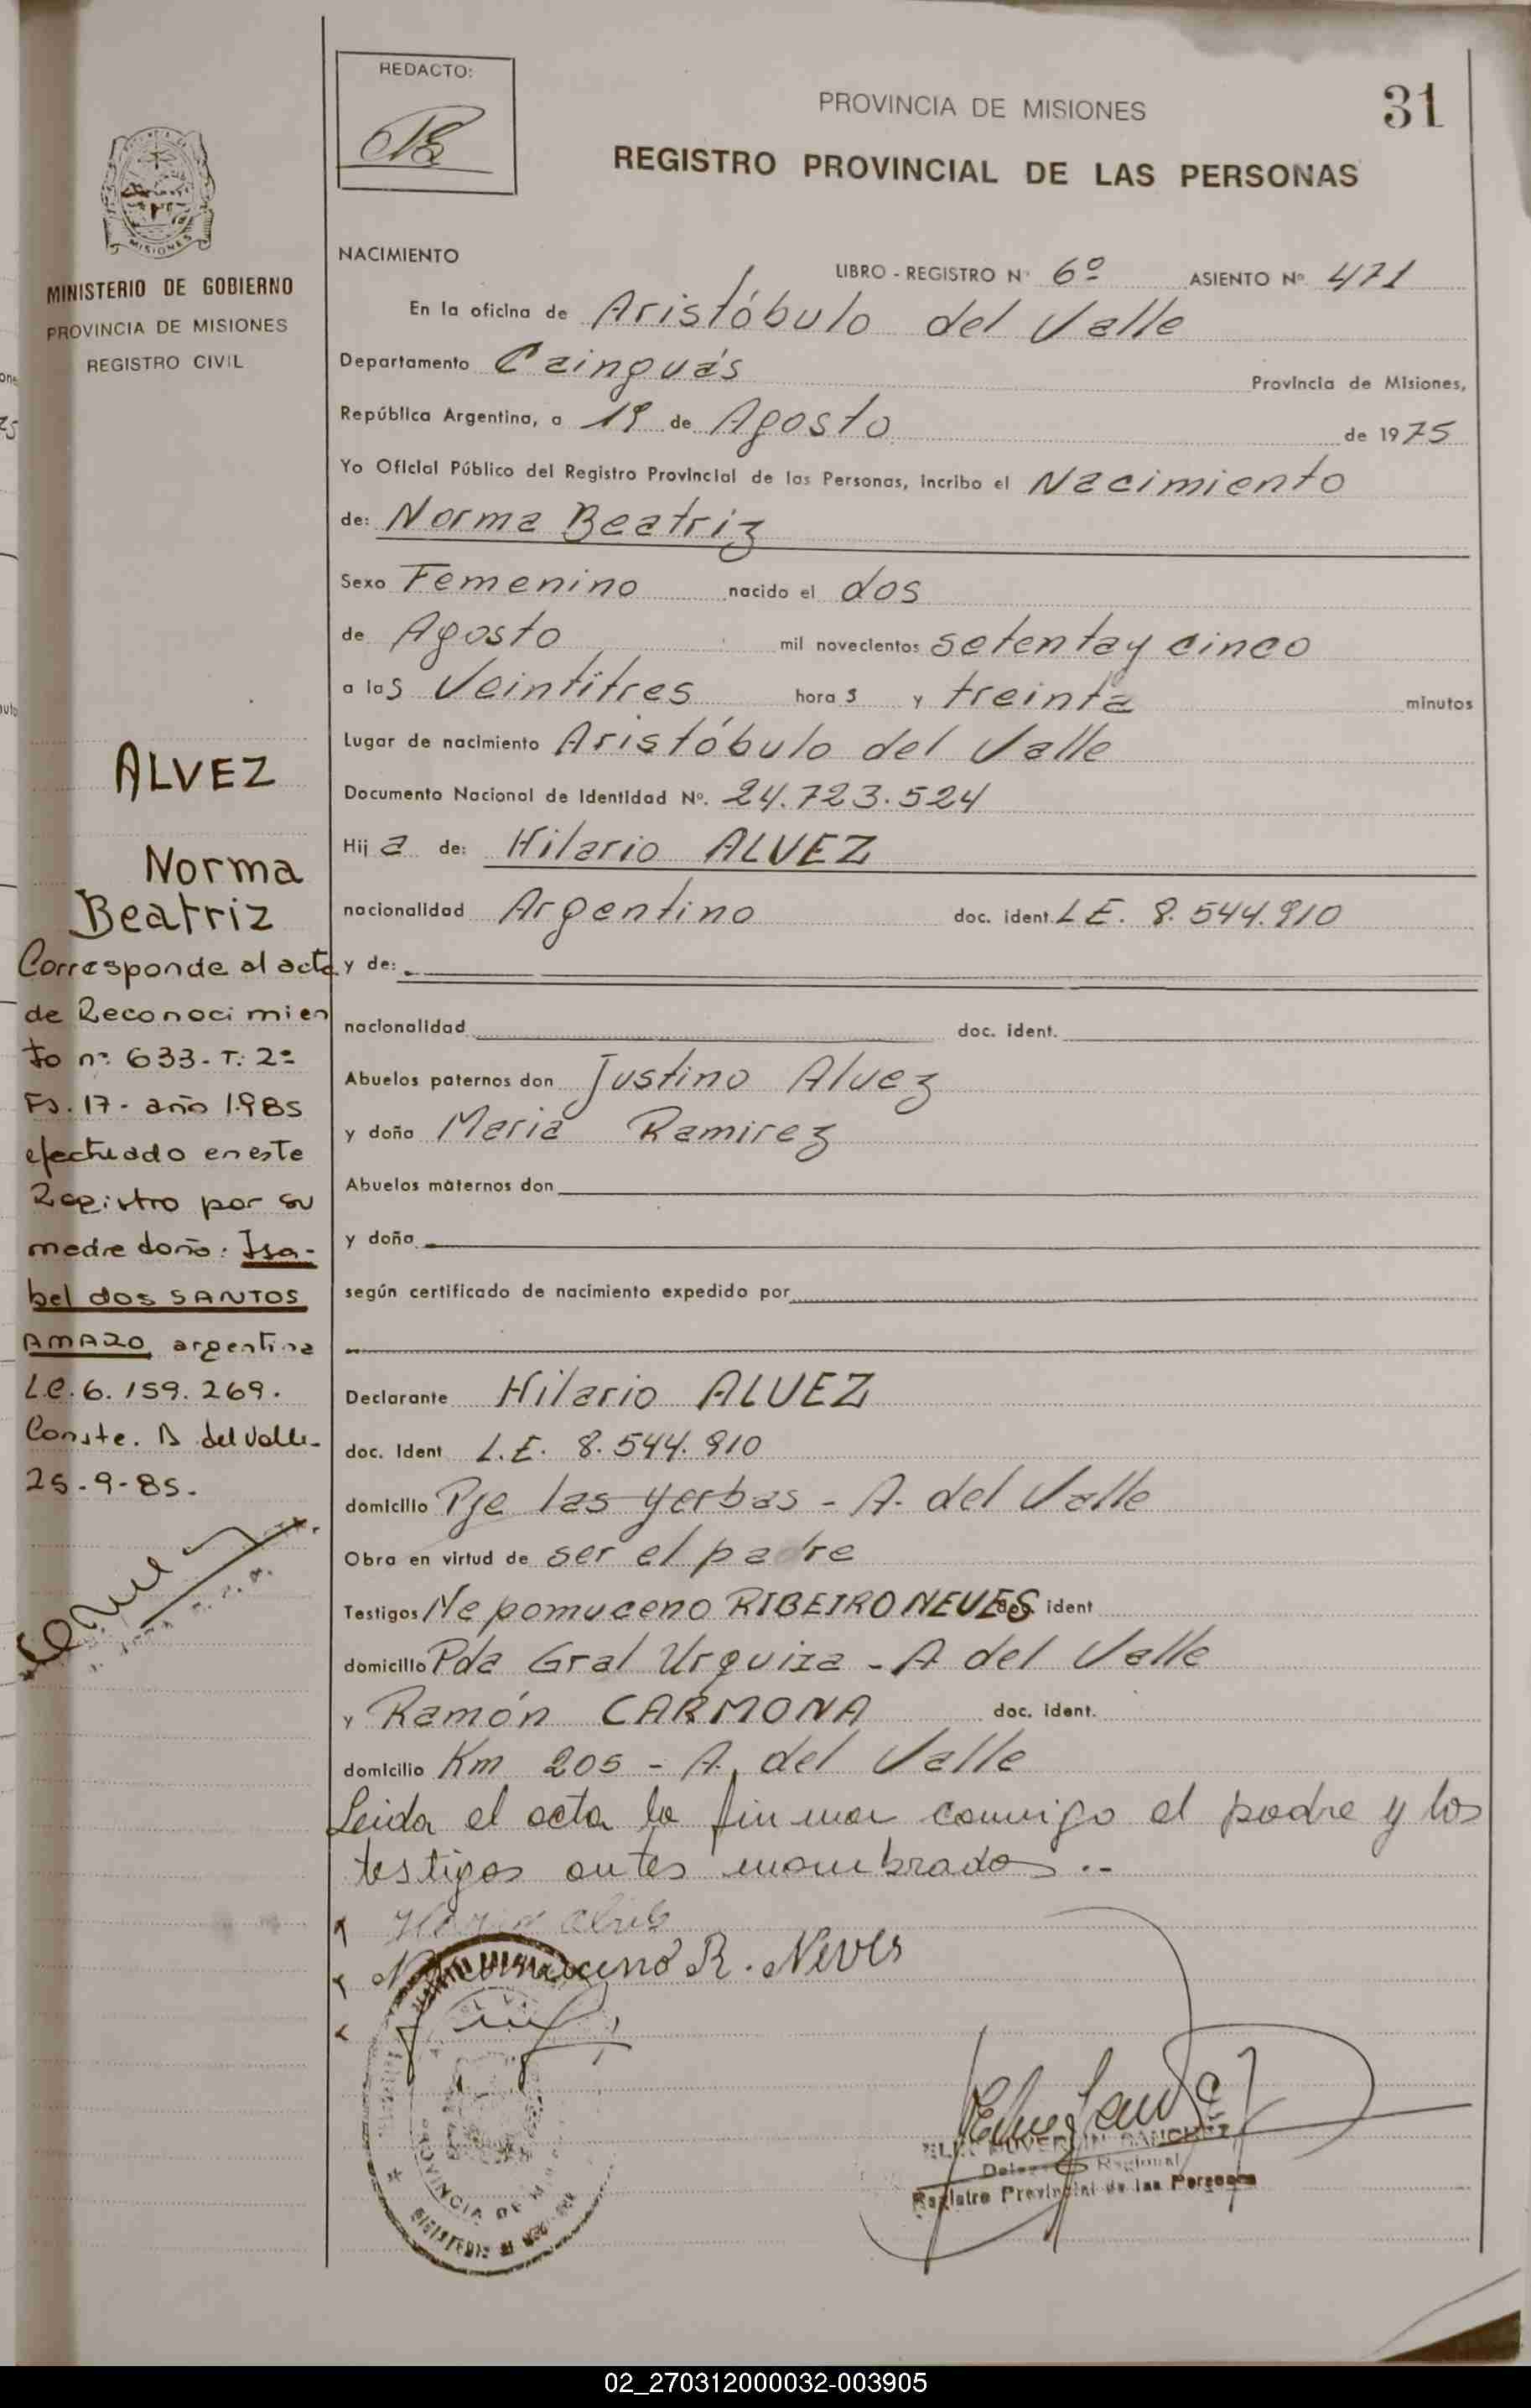 REDACTO:
PROVINCIA DE MISIONES
31
REGISTRO PROVINCIAL DE LAS PERSONAS
MISIONES
MINISTERIO DE GOBIERNO
PROVINCIA DE MISIONES
REGISTRO CIVIL
NACIMIENTO
LIBRO - REGISTRO N° 6º ASIENTO Nº 471
En la oficina de Aristóbulo del Valle
Departamento Cainguás Provincia de Misiones,
República Argentina, a 19 de Agosto de 1975
Yo Oficial Público del Registro Provincial de las Personas, incribo el Nacimiento
de: Norma Beatriz
Sexo Femenino nacido el dos
de Agosto mil novecientos setenta y cinco
a las Veintitres horas y treinta minutos
Lugar de nacimiento Aristóbulo del Valle
Documento Nacional de Identidad Nº. 24.723.524
Hija de: Hilario ALVEZ
nacionalidad Argentino doc. ident. L E. 8.544.910
y de:
nacionalidad doc. ident.
Abuelos paternos don Justino Alvez
y doña Maria Ramirez
Abuelos maternos don
y doña
según certificado de nacimiento expedido por
Declarante Hilario ALVEZ
doc. Ident L.E. 8.544.910
domicilio Pje las yerbas - A. del Valle
Obra en virtud de ser el padre
Testigos Nepomuceno RIBEIRO NEVES ident
domicilio Pda Gral Urquiza - A del Valle
y Ramón CARMONA doc. ident.
domicilio Km 205 - A. del Valle
Leida el acta la firman conmigo el padre y los
testigos antes nombrados..-
R. Neves
ALVEZ
Norma
Beatriz
Corresponde al acta
de Reconocimien
to nº 633- T: 2º
Fs. 17- año 1.985
efectuado en este
Registro por su
madre doña: Isa-
bel dos SANTOS
AMARO argentina
L.C. 6.159.269.
Conste. A del Valle-
25-9-85.
Registro Provincial de las Personas
PROVINCIA DE
02_270312000032-003905